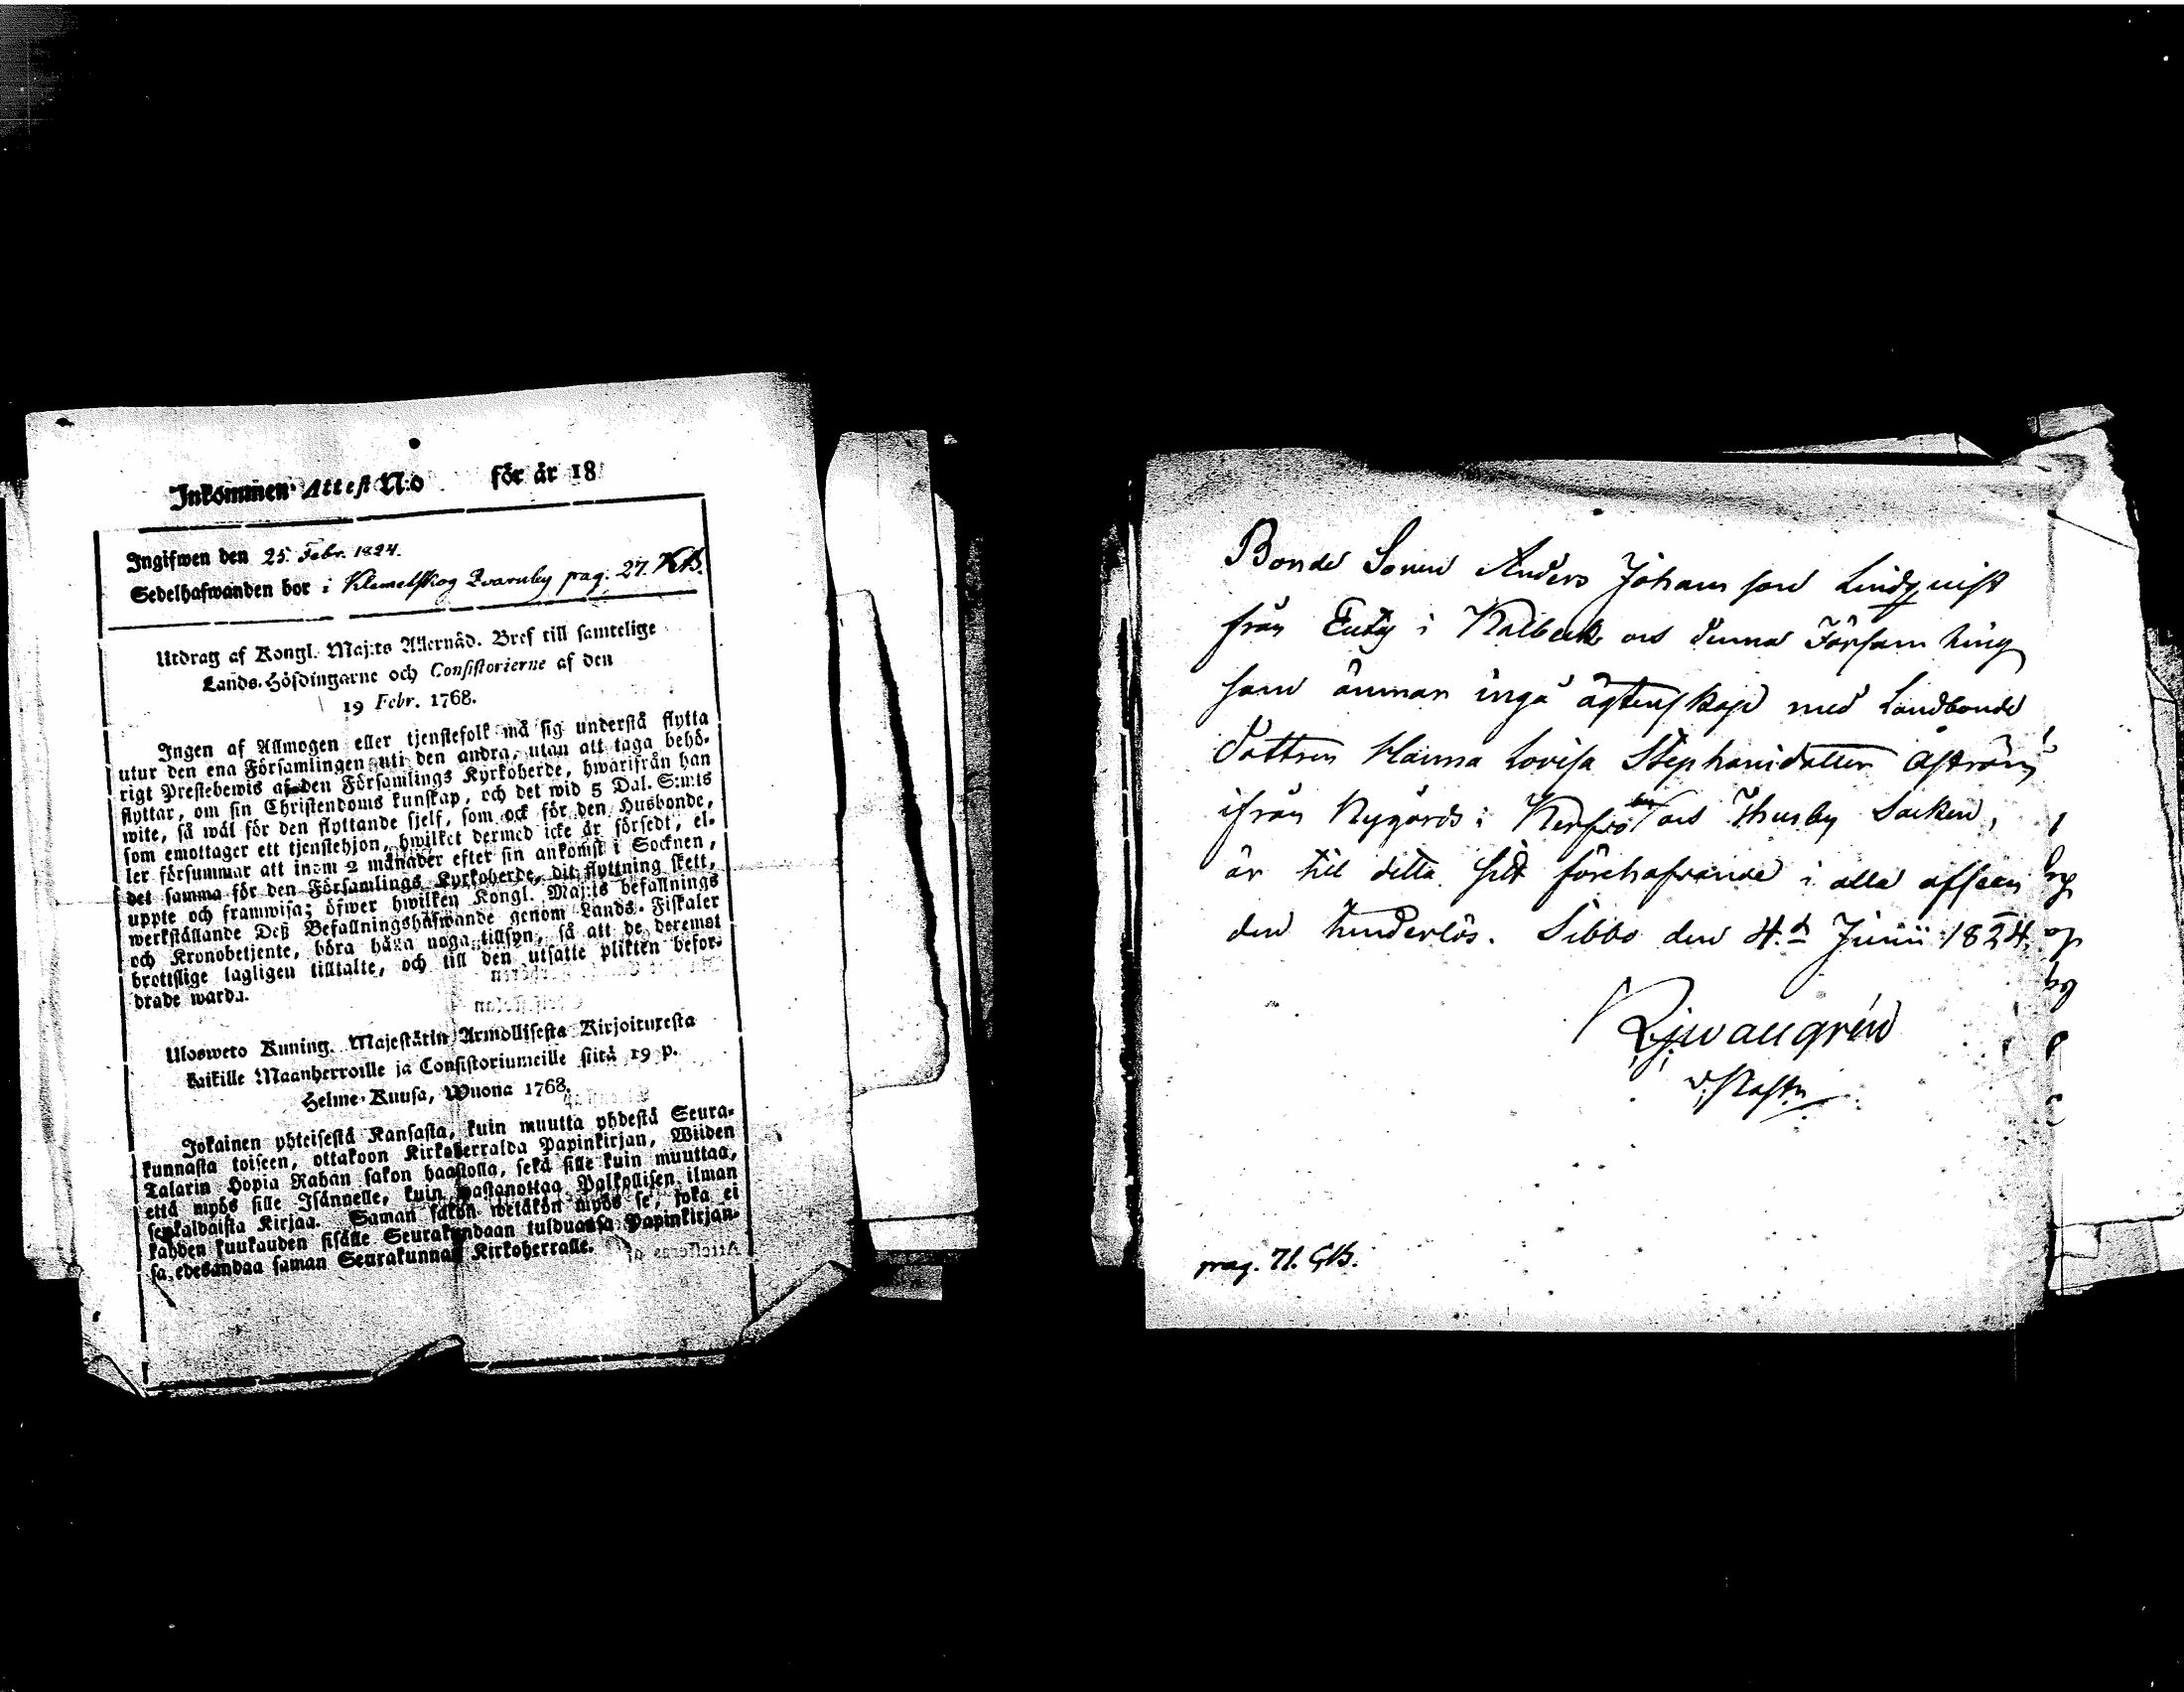 Inkommen Attest N:o för år 18
Ingifwen den 25. Febr. 1824.
Sedelhafwanden bor i Klemetskog Qvarnby pag. 27. KB.
Utdrag af Kongl. Maj:ts Allernåd. Bref till samtelige
Lands-Höfdingarne och Consistorierne af den
19 Febr. 1768.
Ingen af Allmogen eller tjenstefolk må sig understå flytta
utur den ena Församlingen uti den andra, utan att taga behö-
rigt Prestebewis af den Församlings Kyrkoherde, hwarifrån han
flyttar, om sin Christendoms kunskap, och det wid 5 Dal. S:mts
wite, så wäl för den flyttande sjelf, som ock för den Husbonde,
som emottager ett tjenstehjon, hwilket dermed icke är försedt, el-
ler försummar att inom 2 månader efter sin ankomst i Socknen,
det samma för den Församlings Kyrkoherde, dit flyttning skett,
uppte och framwisa; öfwer hwilken Kongl. Maj:ts befallnings
werkställande Deß Befallningshafwande genom Lands-Fiskaler
och Kronobetjente, böra hafwa noga tillsyn, så att de deremot
brottslige lagligen tilltalte, och till den utsatte plikten befor-
drade warda.
Ulosweto Kuning. Majestätin Armollisesta Kirjoituxesta
kaikille Maanherroille ja Consistoriumeille siitä 19 p.
Helme-Kuusa, Wuona 1768.
Jokainen yhteisestä Kansasta, kuin muutta yhdestä Seura-
kunnasta toiseen, ottakoon Kirkoherralda Papinkirjan, Wiiden
Talarin Hopia Rahan sakon haastolla, sekä sille kuin muuttaa,
että myös sille Isännelle, kuin wastanottaa Palkollisen ilman
senkaldaista Kirjaa. Saman sakon wetäkön myös se, joka ei
kahden kuukauden sisälle Seurakundaan tulduansa Papinkirjan-
sa, edesandaa saman Seurakunnan Kirkoherralle.
Bonde Sonen Anders Johansson Lindqvist
från i Kalbeck och denna Församling
som ämnar ingå ägtenskap med Landbonde
Dottren Hanna Lovisa Stephanidotter Åström
ifrån Nygårds i och Thusby Socken,
är till detta sitt förehafvande i alla afseen
den hinderlös. Sibbo den 4.d Junii 1824.
v. Pastor
pag. 71. GB.